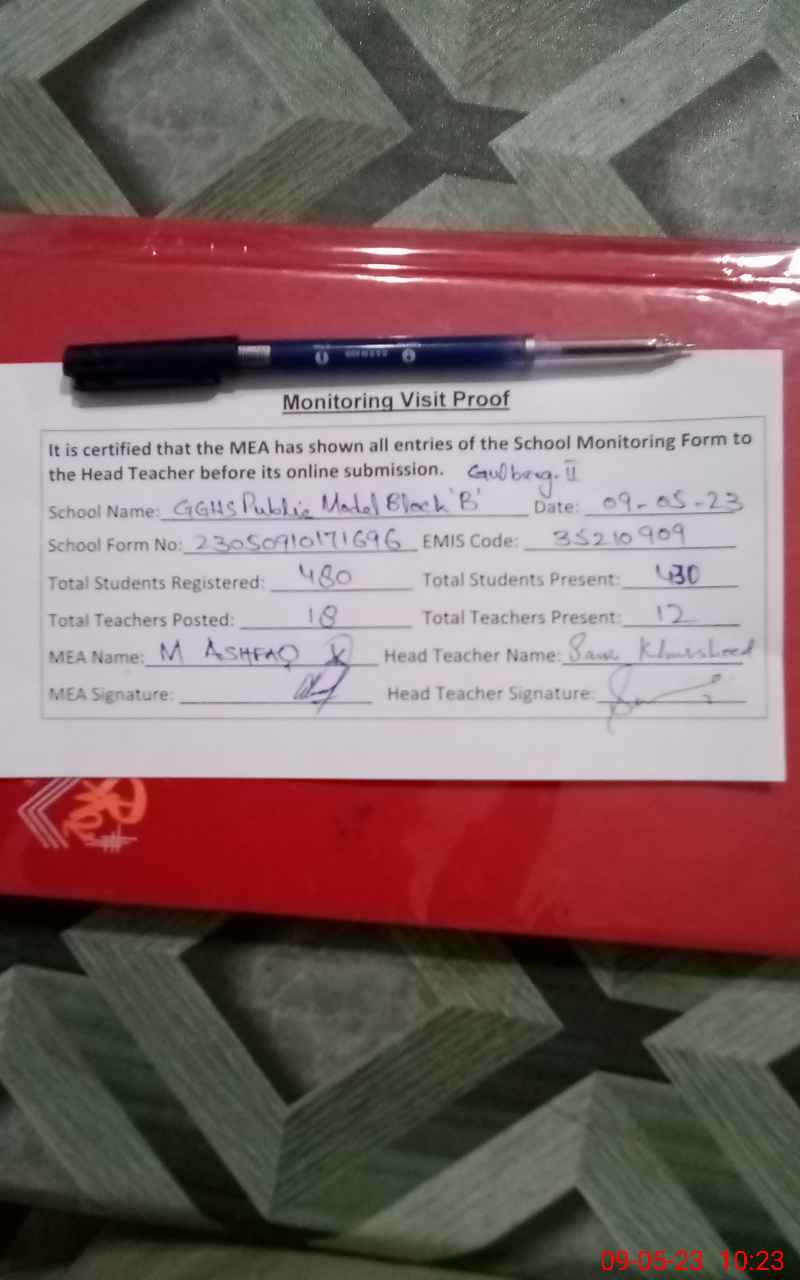 Monitoring Visit Proof
It is certified that the MEA has shown all entries of the School Monitoring Form to
the Head Teacher before its online submission. Gulberg. II
School Name: GGHS Public Model Block 'B' Date: 09-05-23
School Form No: 23050910171696 EMIS Code: 35210909
Total Students Registered: 480 Total Students Present: 430
Total Teachers Posted: 18 Total Teachers Present: 12
MEA Name: M ASHFAQ Head Teacher Name: Khursheed
MEA Signature: Head Teacher Signature:
09-05-23 10:23